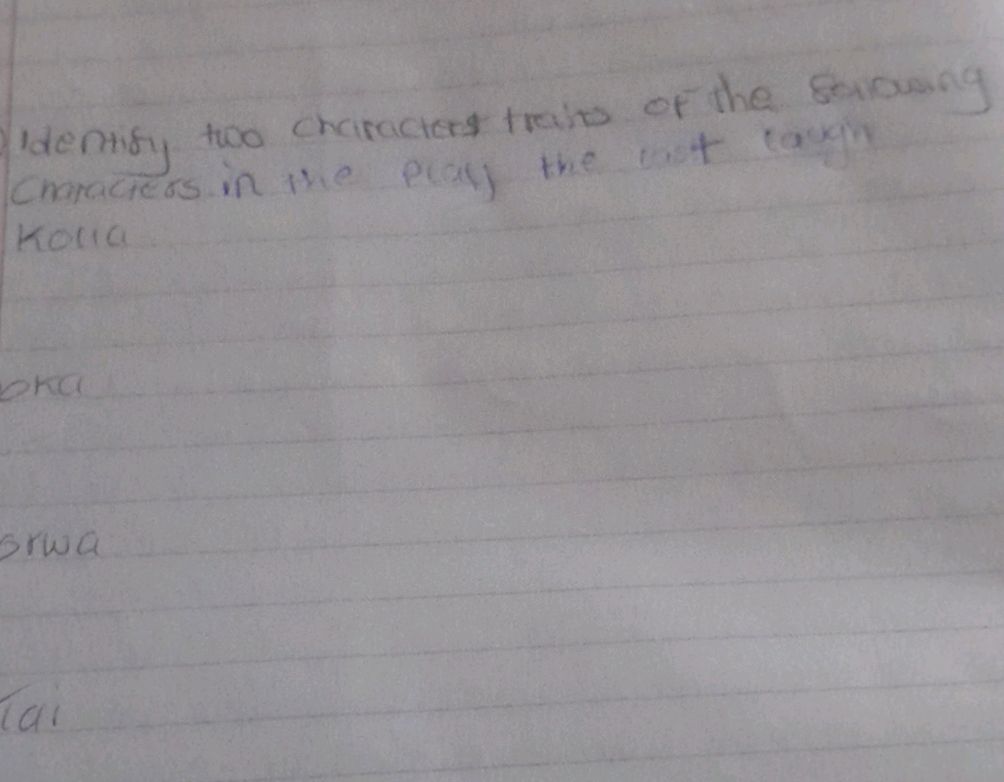 Identify two characters traits of the following
characters in the play the last laugh
Kolla
oka
srwa
Tai